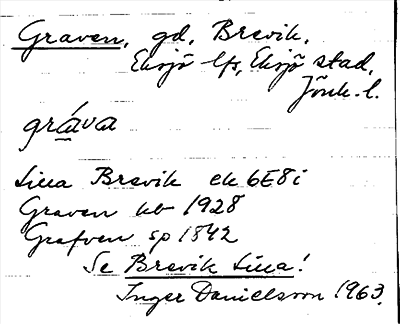 Graven, gd, Brevik,
Eksjö lfs, Eksjö stad,
Jönk. l.
gráva
Lilla Brevik ek 6E8i
Graven kb 1928
Grafven sp 1842
Se Brevik Lilla!
Inger Danielsson 1963.